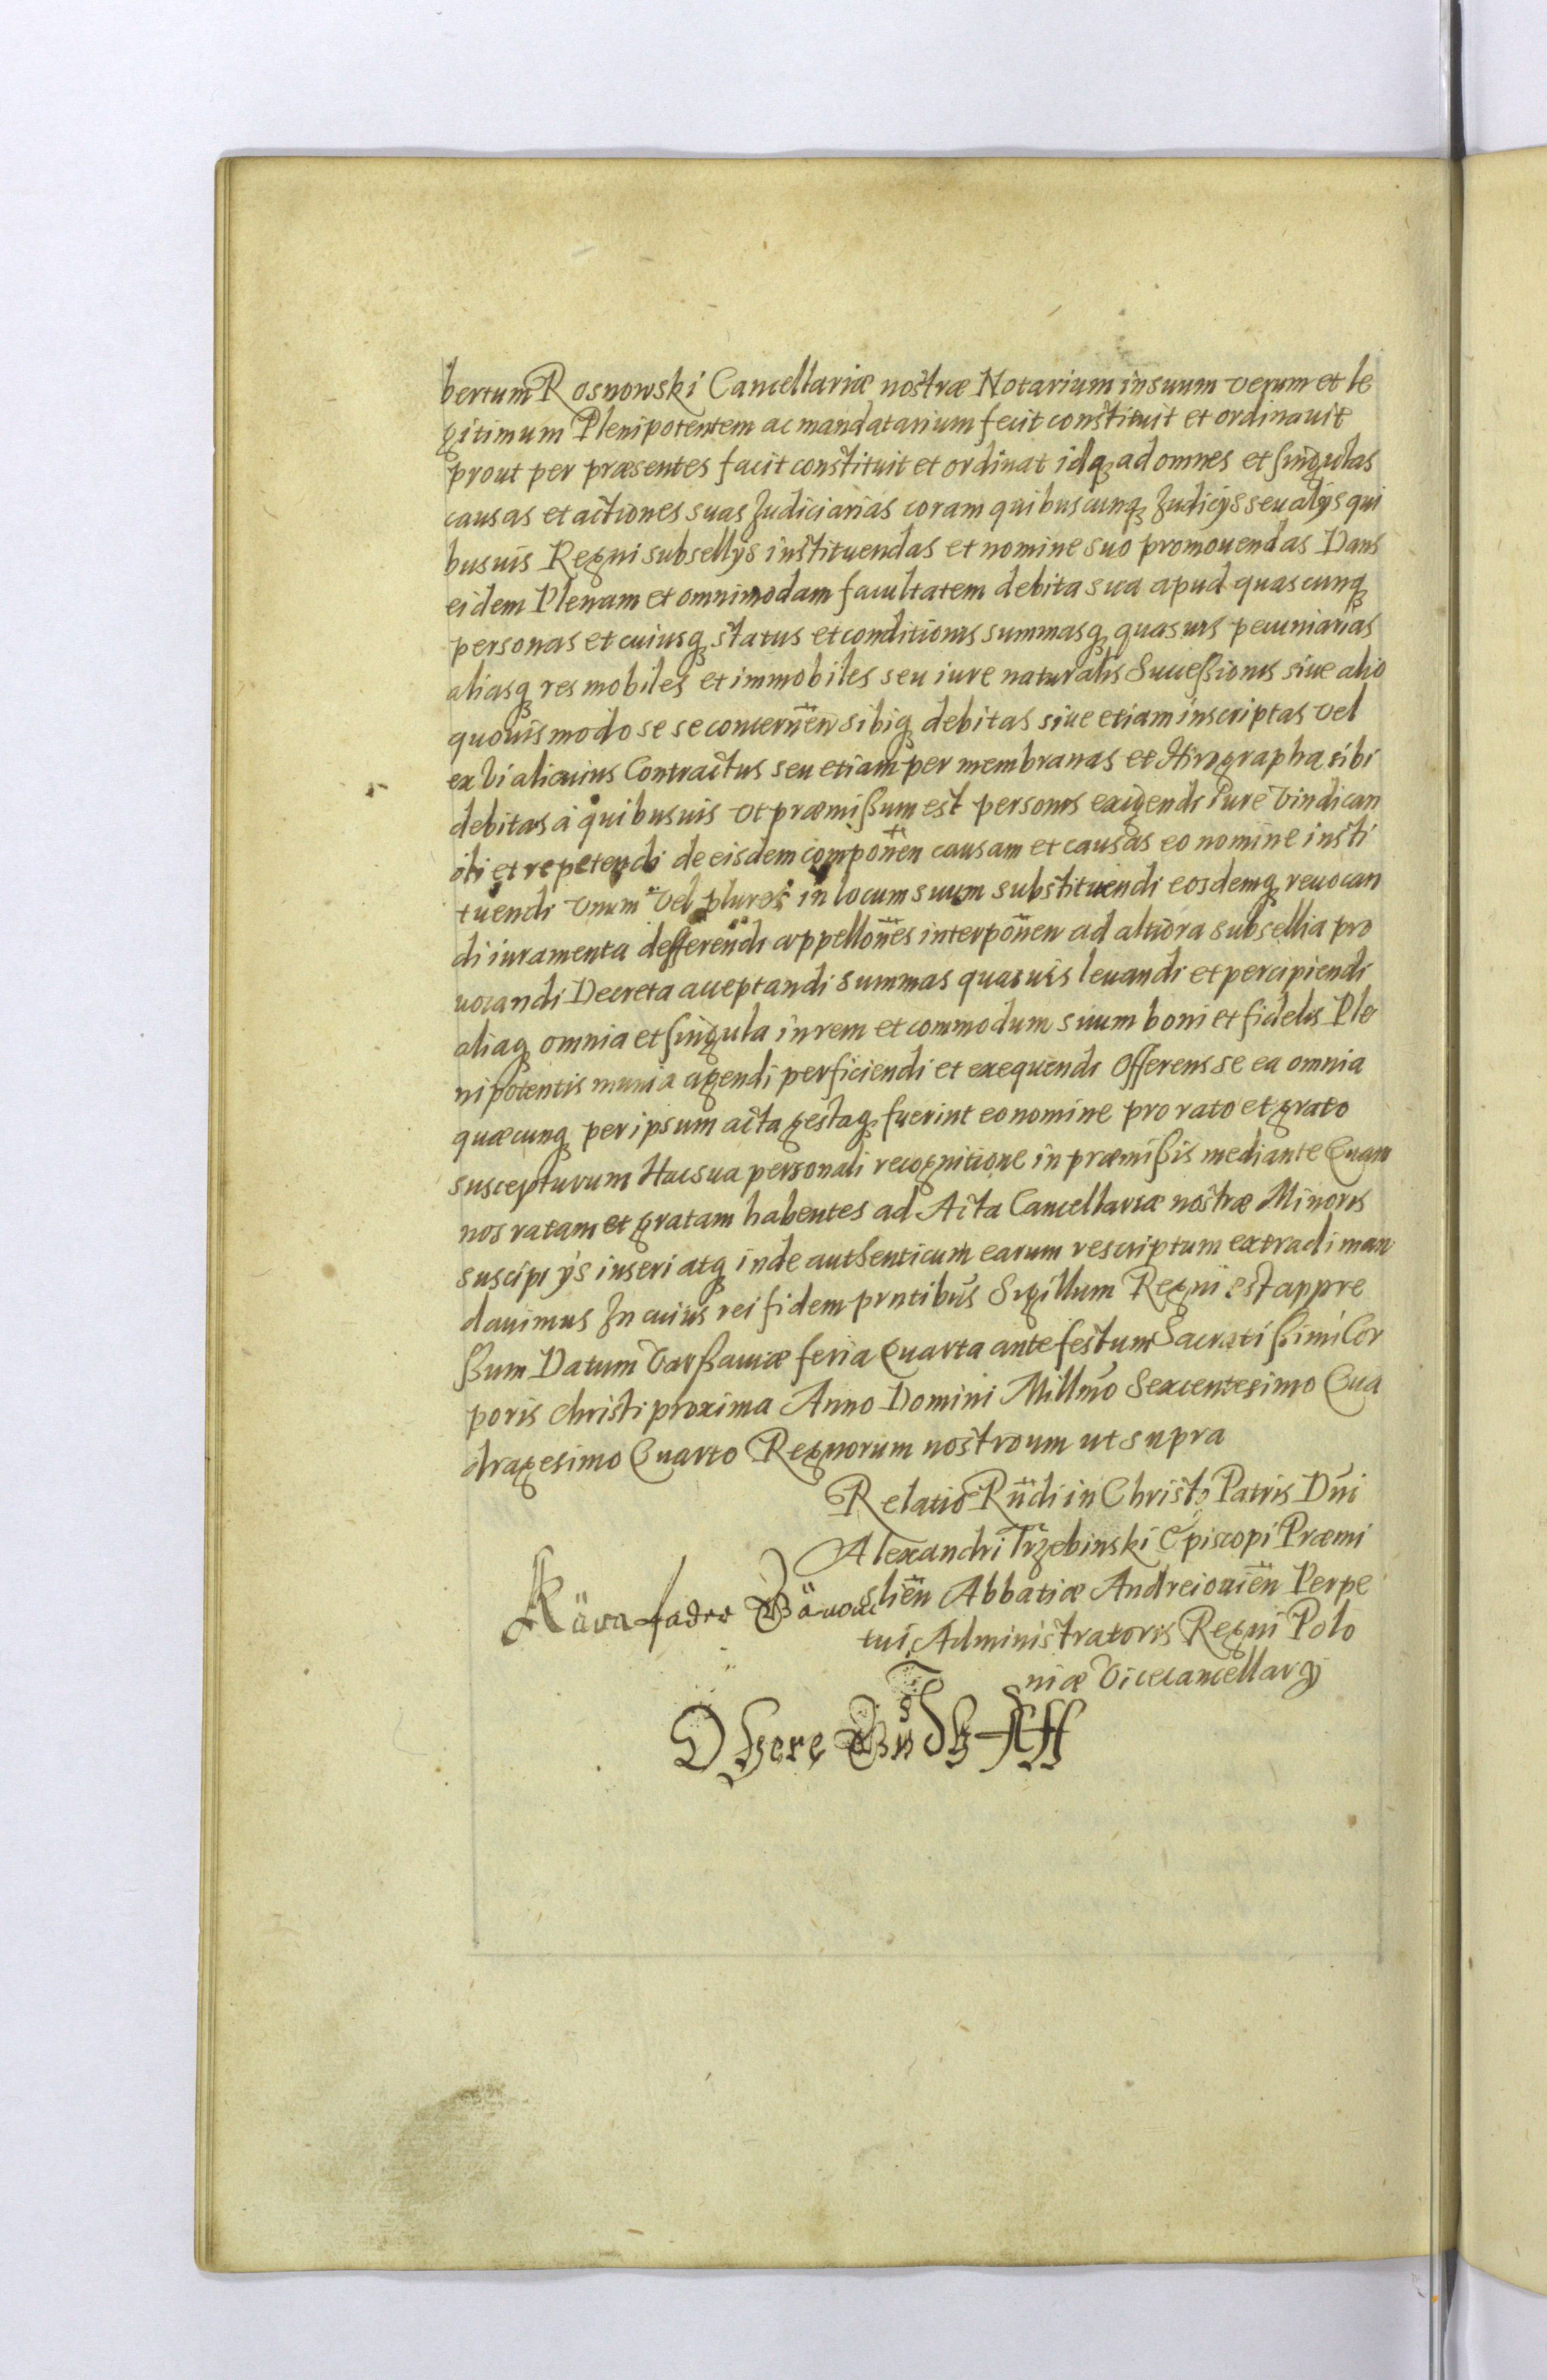 bertum Rosnowski Cancellariæ nostræ Notarium in suum verum et le
gitimum Plenipotentem ac mandatarium fecit constituit et ordinauit
prout per præsentes facit constituit et ordinat idq ad omnes et singulas
causas et actiones suas Judiciarias coram quibuscunq Judicÿs seu alÿs qui
busuis Regni subsellÿs instituendas et nomine suo promouendas Dans
eidem Plenam et omnimodam facultatem debita sua apud quascunq
personas et cuiusq status et conditionis summasq quasuis pecuniarias
aliasq res mobiles et immobiles seu iure naturalis Sucessionis siue alio
quouis modo se se concernen sibiq debitas siue etiam inscriptas vel
ex vi alicuius Contractus seu etiam per membranas et Hirographa sibi
debitas à quibusuis ut præmißum est personis exigendi iure vindican
di et repetendi de eisdem componen causam et causas eo nomine insti
tuendi vnum vel plures in locum suum substituendi eosdemq reuocan
di iuramenta defferendi appellones interponen ad altiora subsellia pro
uocandi Decreta acceptandi summas quasuis leuandi et percipiendi
aliaq omnia et singula in rem et commodum suum boni et fidelis Ple
nipotentis munia agendi perficiendi et exequendi Offerens se ea omnia
quæcunq per ipsum acta gestaq fuerint eo nomine pro rato et grato
suscepturum Hac sua personali recognitione in præmißis mediante Quam
nos ratam et gratam habentes ad Acta Cancellariæ nostræ Minoris
suscipi ÿs inseri atq inde authenticum earum rescriptum extradi man
dauimus In cuius rei fidem pntibus Sigillum Regni est appre
ßum Datum Varßauiæ feria Quarta ante festum Sacratißimi Cor
poris Christi proxima Anno Domini Millmo Sexcentesimo Qua
dragesimo Quarto Regnorum nostroum ut supra
Relatio Rndi in Christo Patris Dni
Alexandri Trzebinski Episcopi Præmi
slien Abbatiæ Andreiouien Perpe
tui Administratoris Regni Polo
niæ Vicecancellarÿ